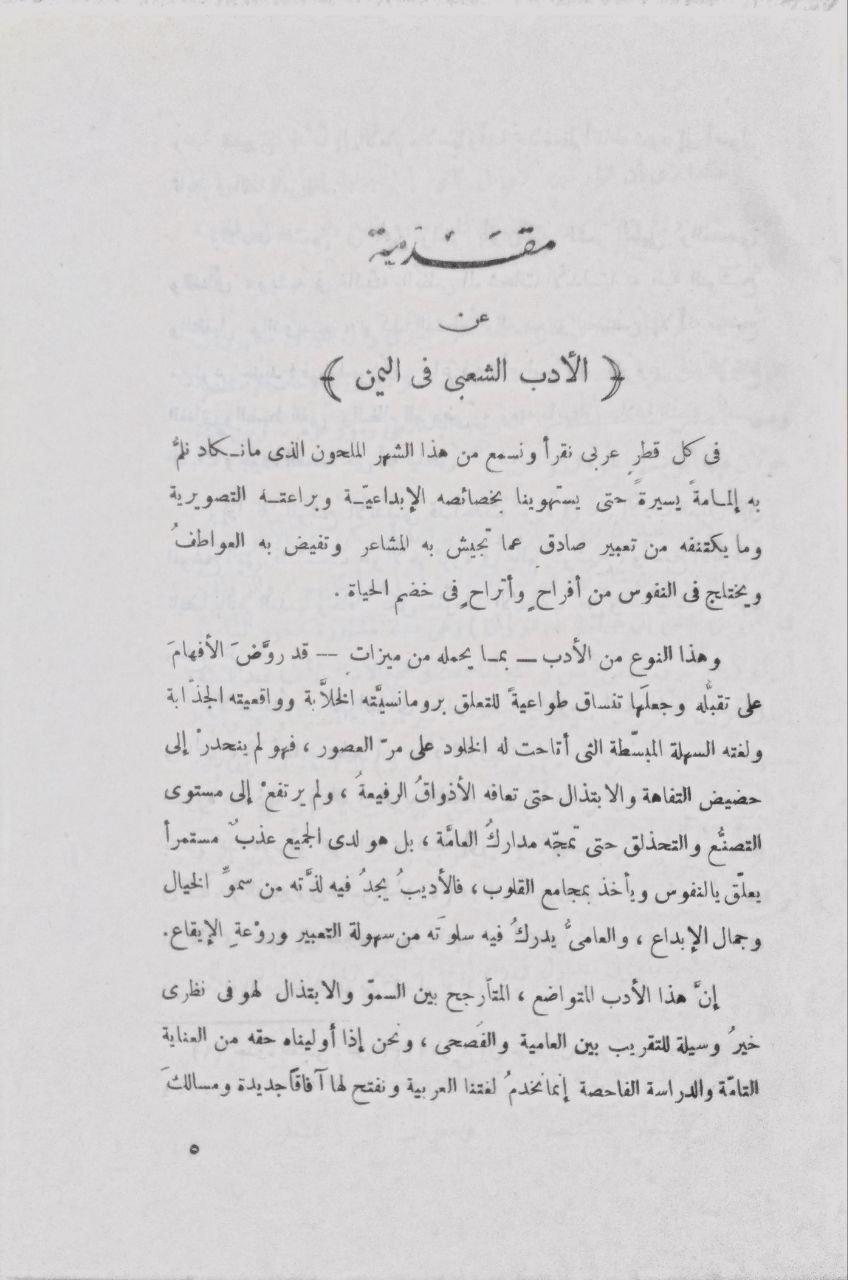 مقدمة
عن
﴿ الأدب الشعبى فى اليمن ﴾
فى كل قطرٍ عربى نقرأ ونسمع من هذا الشهر الملحون الذى مانـكاد نلمُّ
به إلمـامةً يسيرةً حتى يستهوينا بخصائصه الإبداعيّـة وبراعتـه التصويرية
وما يكتنفه من تعبير صادقٍ عما تجيش به المشاعر وتفيض به العواطفُ
ويختلج فى النفوس من أفراحٍ وأتراحٍ فى خضم الحياة .
وهذا النوع من الأدب ــ بمـا يحمله من ميزاتٍ ــ قد روَّضَ الأفهامَ
على تقبُّله وجعلَها تنساق طواعيةً للتعلق برومانسيَّته الخلاَّبة وواقعيته الجذّابة
ولغته السهلة المبسّطة التى أتاحت له الخلود على مرّ العصور ، فهو لم ينحدرْ إلى
حضيض التفاهة والابتذال حتى تعافه الأذواقُ الرفيعةُ ، ولم يرتفعْ إلى مستوى
التصنُّع والتحذلق حتى تمجّه مداركُ العامَّة ، بل هو لدى الجميع عذبٌ مستمرأ
يعلّق بالنفوس ويأخذ بمجامع القلوب ، فالأديبُ يجدُ فيه لذَّته من سموِّ الخيال
وجمال الإبداع ، والعامىُّ يدركُ فيه سلوتَه من سهولة التعبير وروْعةِ الإيقاع.
إنَّ هذا الأدب المتواضع ، المتأرجح بين السموّ والابتذال لهو فى نظرى
خيرُ وسيلة للتقريب بين العامية والفَصحى ، ونحن إذا أوليناه حقه من العناية
التامّة والدراسة الفاحصة إنمانخدمُ لغتنا العربية ونفتح لها آفاقاًجديدة ومسالكَ
٥